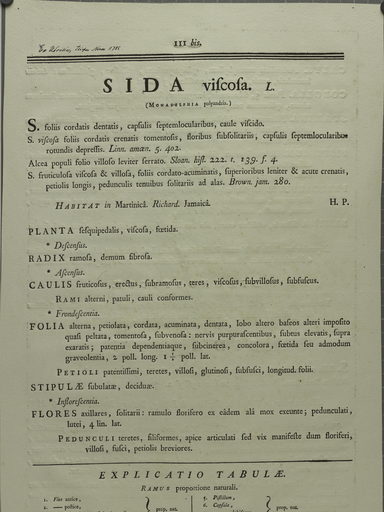 III bis.
SIDA viſcoſa. L.
(MONADELPHIA polyandria.)
S. foliis cordatis dentatis, capſulis ſeptemlocularibus, caule viſcido.
S. viſcoſa foliis cordatis crenatis tomentoſis, floribus ſubſolitariis, capſulis ſeptemlocularibus
rotundis depreſſis. Linn. amœn. 5. 402.
Alcea populi folio villoſo leviter ſerrato. Sloan. hiſt. 222. t. 139. f. 4.
S. fruticuloſa viſcoſa & villoſa, foliis cordato-acuminatis, ſuperioribus leniter & acute crenatis,
petiolis longis, pedunculis tenuibus ſolitariis ad alas. Brown. jam. 280.
HABITAT in Martinicâ. Richard. Jamaicâ. H. P.
PLANTA ſeſquipedalis, viſcoſa, fœtida.
* Deſcenſus.
RADIX ramoſa, demum fibroſa.
* Aſcenſus.
CAULIS fruticoſus, erectus, ſubramoſus, teres, viſcoſus, ſubvilloſus, ſubfuſcus.
RAMI alterni, patuli, cauli conformes.
* Frondeſcentia.
FOLIA alterna, petiolata, cordata, acuminata, dentata, lobo altero baſeos alteri impoſito
quaſi peltata, tomentoſa, ſubvenoſa: nervis purpuraſcentibus, ſubtus elevatis, ſupra
exaratis; patentia dependentiaque, ſubcinerea, concolora, fœtida ſeu admodum
graveolentia, 2 poll. long. 1 ½ poll. lat.
PETIOLI patentiſſimi, teretes, villoſi, glutinoſi, ſubfuſci, longitud. folii.
STIPULÆ ſubulatæ, deciduæ.
* Infloreſcentia.
FLORES axillares, ſolitarii: ramulo florifero ex eâdem alâ mox exeunte; pedunculati,
lutei, 4 lin. lat.
PEDUNCULI teretes, filiformes, apice articulati ſed vix manifeſte dum floriferi,
villoſi, fuſci, petiolis breviores.
EXPLICATIO TABULÆ.
RAMUS proportione naturali.
1. Flos antice, 5. Piſtillum,
2. — poſtice, prop. nat. 6. Capſula, prop. nat.